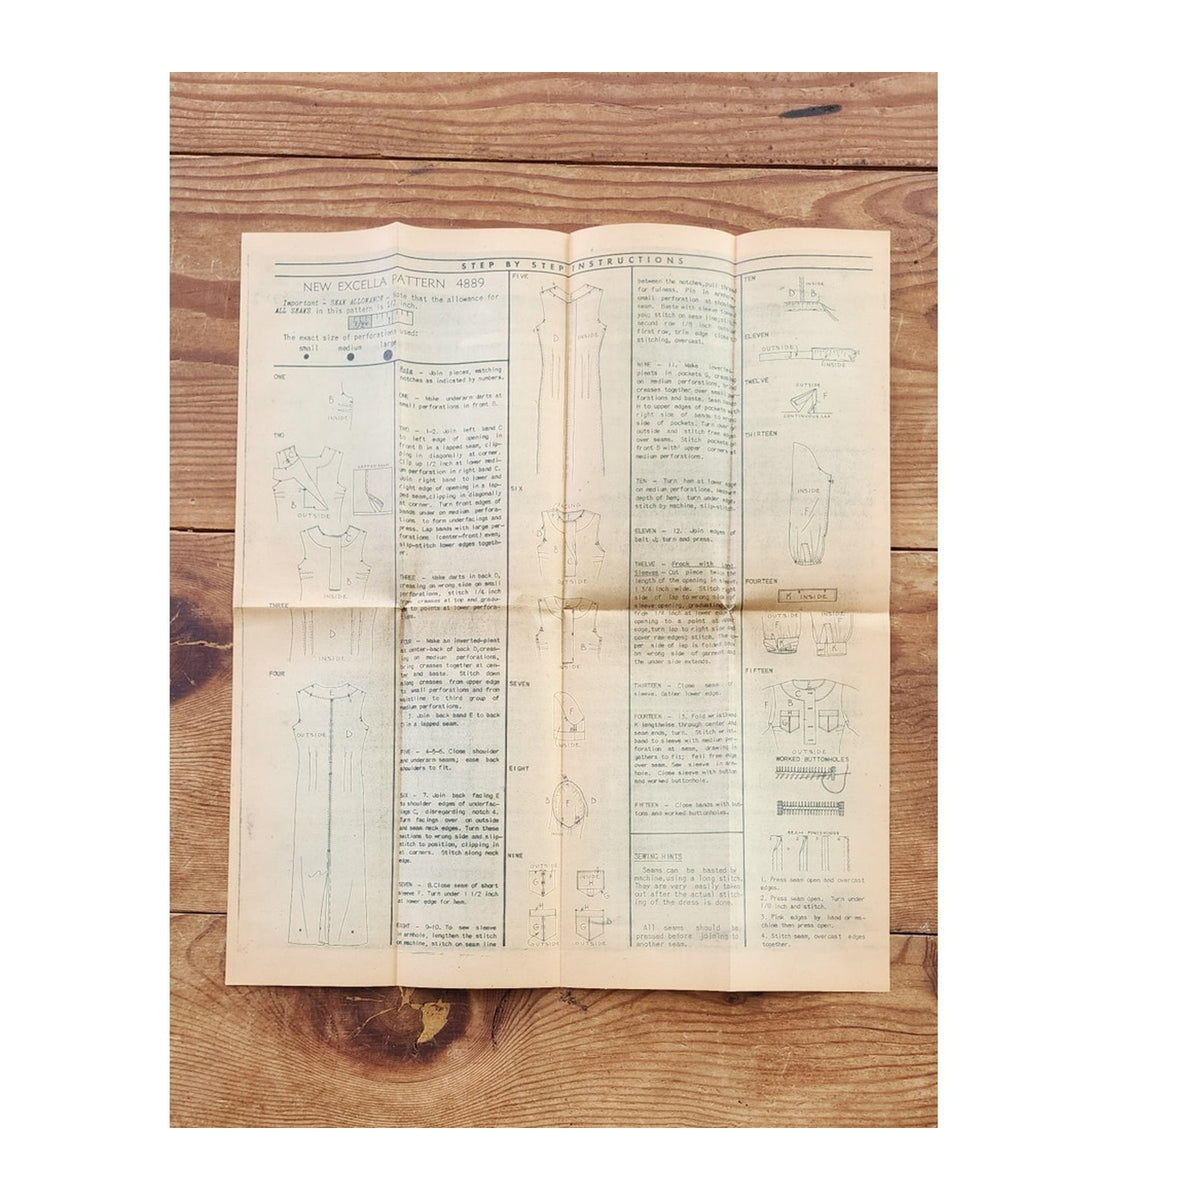 STEP BY STEP INSTRUCTIONS
NEW EXCELLA PATTERN 4889
Important - SEAM ALLOWANCE - Note that the allowance for
ALL SEAMS in this pattern is 1/2 inch.
The exact size of perforations used:
small medium large
ONE
B
INSIDE
TWO
B
OUTSIDE
LAPPED SEAM
B
INSIDE
THREE
D
INSIDE
FOUR
E
OUTSIDE D
Rule - Join pieces, matching
notches as indicated by numbers.
ONE - Make underarm darts at
small perforations in front B.
TWO - 1-2. Join left band C
to left edge of opening in
front B in a lapped seam, clip-
ping in diagonally at corner.
Clip up 1/2 inch at lower medi-
um perforation in right band C.
Join right band to lower and
right edge of opening in a lap-
ped seam, clipping in diagonally
at corner. Turn front edges of
bands under on medium perfora-
tions to form underfacings and
press. Lap bands with large per-
forations (center-front) even;
slip-stitch lower edges togeth-
er.
THREE - Make darts in back D,
creasing on wrong side on small
perforations, stitch 1/4 inch
from creases at top and gradu-
ate to points at lower perfora-
tions.
FOUR - Make an inverted-pleat
at center-back of back D, creas-
ing on medium perforations,
bring creases together at cen-
ter and baste. Stitch down
along creases from upper edge
to small perforations and from
waistline to third group of
medium perforations.
3. Join back band E to back
in a lapped seam.
FIVE - 4-5-6. Close shoulder
and underarm seams; ease back
shoulders to fit.
SIX - 7. Join back facing E
to shoulder edges of underfac-
ings C, disregarding notch 4.
Turn facings over on outside
and seam neck edges. Turn these
sections to wrong side and slip-
stitch to position, clipping in
at corners. Stitch along neck
edge.
SEVEN - 8. Close seam of short
sleeve F. Turn under 1 1/2 inch
at lower edge for hem.
EIGHT - 9-10. To sew sleeve
in armhole, lengthen the stitch
on machine, stitch on seam line
FIVE
D INSIDE
SIX
FACING
D
C
OUTSIDE
B
INSIDE
SEVEN
F
INSIDE
EIGHT
B F D
NINE
OUTSIDE
G
INSIDE
H
G
H
G
OUTSIDE
H
G B
OUTSIDE
between the notches, pull thread
for fulness. Pin in armhole,
small perforation at shoulder
seam. Baste with sleeve toward
you; stitch on seam line; stitch
second row 1/8 inch outside
first row, trim edge close to
stitching, overcast.
NINE - 11. Make inverted-
pleats in pockets G, creasing
on medium perforations, bring
creases together over small per-
forations and baste. Seam bands
H to upper edges of pockets with
right side of bands to wrong
side of pockets. Turn over on
outside and stitch free edges
over seams. Stitch pockets on
front B with upper corners at
medium perforations.
TEN - Turn hem at lower edge
on medium perforations, measure
depth of hem; turn under edge,
stitch by machine, slip-stitch.
ELEVEN - 12. Join edges of
belt J; turn and press.
TWELVE - Frock with Long
Sleeves - Cut piece twice the
length of the opening in sleeve,
1 5/8 inch wide. Stitch right
side of lap to wrong side of
sleeve opening, graduating
from 1/4 inch at lower edge of
opening to a point at upper
edge, turn lap to right side and
cover raw edges; stitch. The up-
per side of lap is folded back
on wrong side of garment and
the under side extends.
THIRTEEN - Close seam of
sleeve. Gather lower edge.
FOURTEEN - 13. Fold wristband
K lengthwise through center and
seam ends, turn. Stitch wrist-
band to sleeve with medium per-
foration at seam, drawing in
gathers to fit; fell free edge
over seam. Sew sleeve in arm-
hole. Close sleeve with button
and worked buttonhole.
FIFTEEN - Close bands with but-
tons and worked buttonholes.
SEWING HINTS
Seams can be basted by
machine, using a long stitch.
They are very easily taken
out after the actual stitch-
ing of the dress is done.
All seams should be
pressed before joining to
another seam.
TEN
INSIDE
D B
ELEVEN
OUTSIDE
INSIDE
TWELVE
OUTSIDE
F
CONTINUOUS LAP
THIRTEEN
INSIDE
F
FOURTEEN
K INSIDE
OUTSIDE
F
K
FIFTEEN
F B C
H
G
OUTSIDE
WORKED BUTTONHOLES
SEAM FINISHINGS
1. Press seam open and overcast
edges.
2. Press seam open. Turn under
1/8 inch and stitch.
3. Pink edges by hand or ma-
chine then press open.
4. Stitch seam, overcast edges
together.